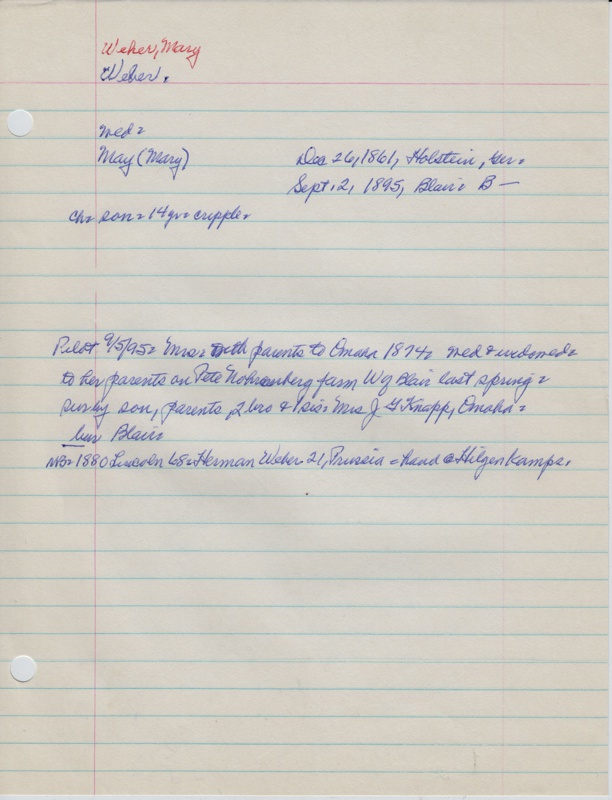 Weber, Mary
Weber.
wed=
May (Mary)
Dec 26, 1861, Holstein, Ger=
Sept. 2, 1895, Blair= B —
ch= son= 14yr= cripple=
Pilot 9/5/95= Mrs= with parents to Omaha 1874= wed & widowed=
to her parents on Pete farm W of Blair last spring=
sur by son, parents, 2 bro & 1 sis= Mrs J G Knapp, Omaha=
bur Blair=
NB= 1880 Lincoln 68= Herman Weber 21, Prussia = hand @ Hilgenkamps.